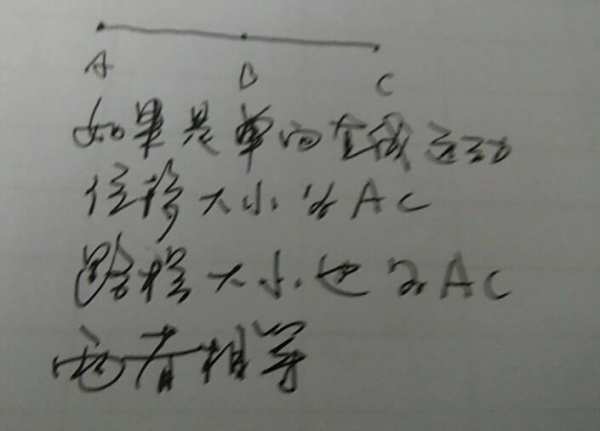 A B C
如果是单向直线运动
位移大小为AC
路程大小也为AC
两者相等